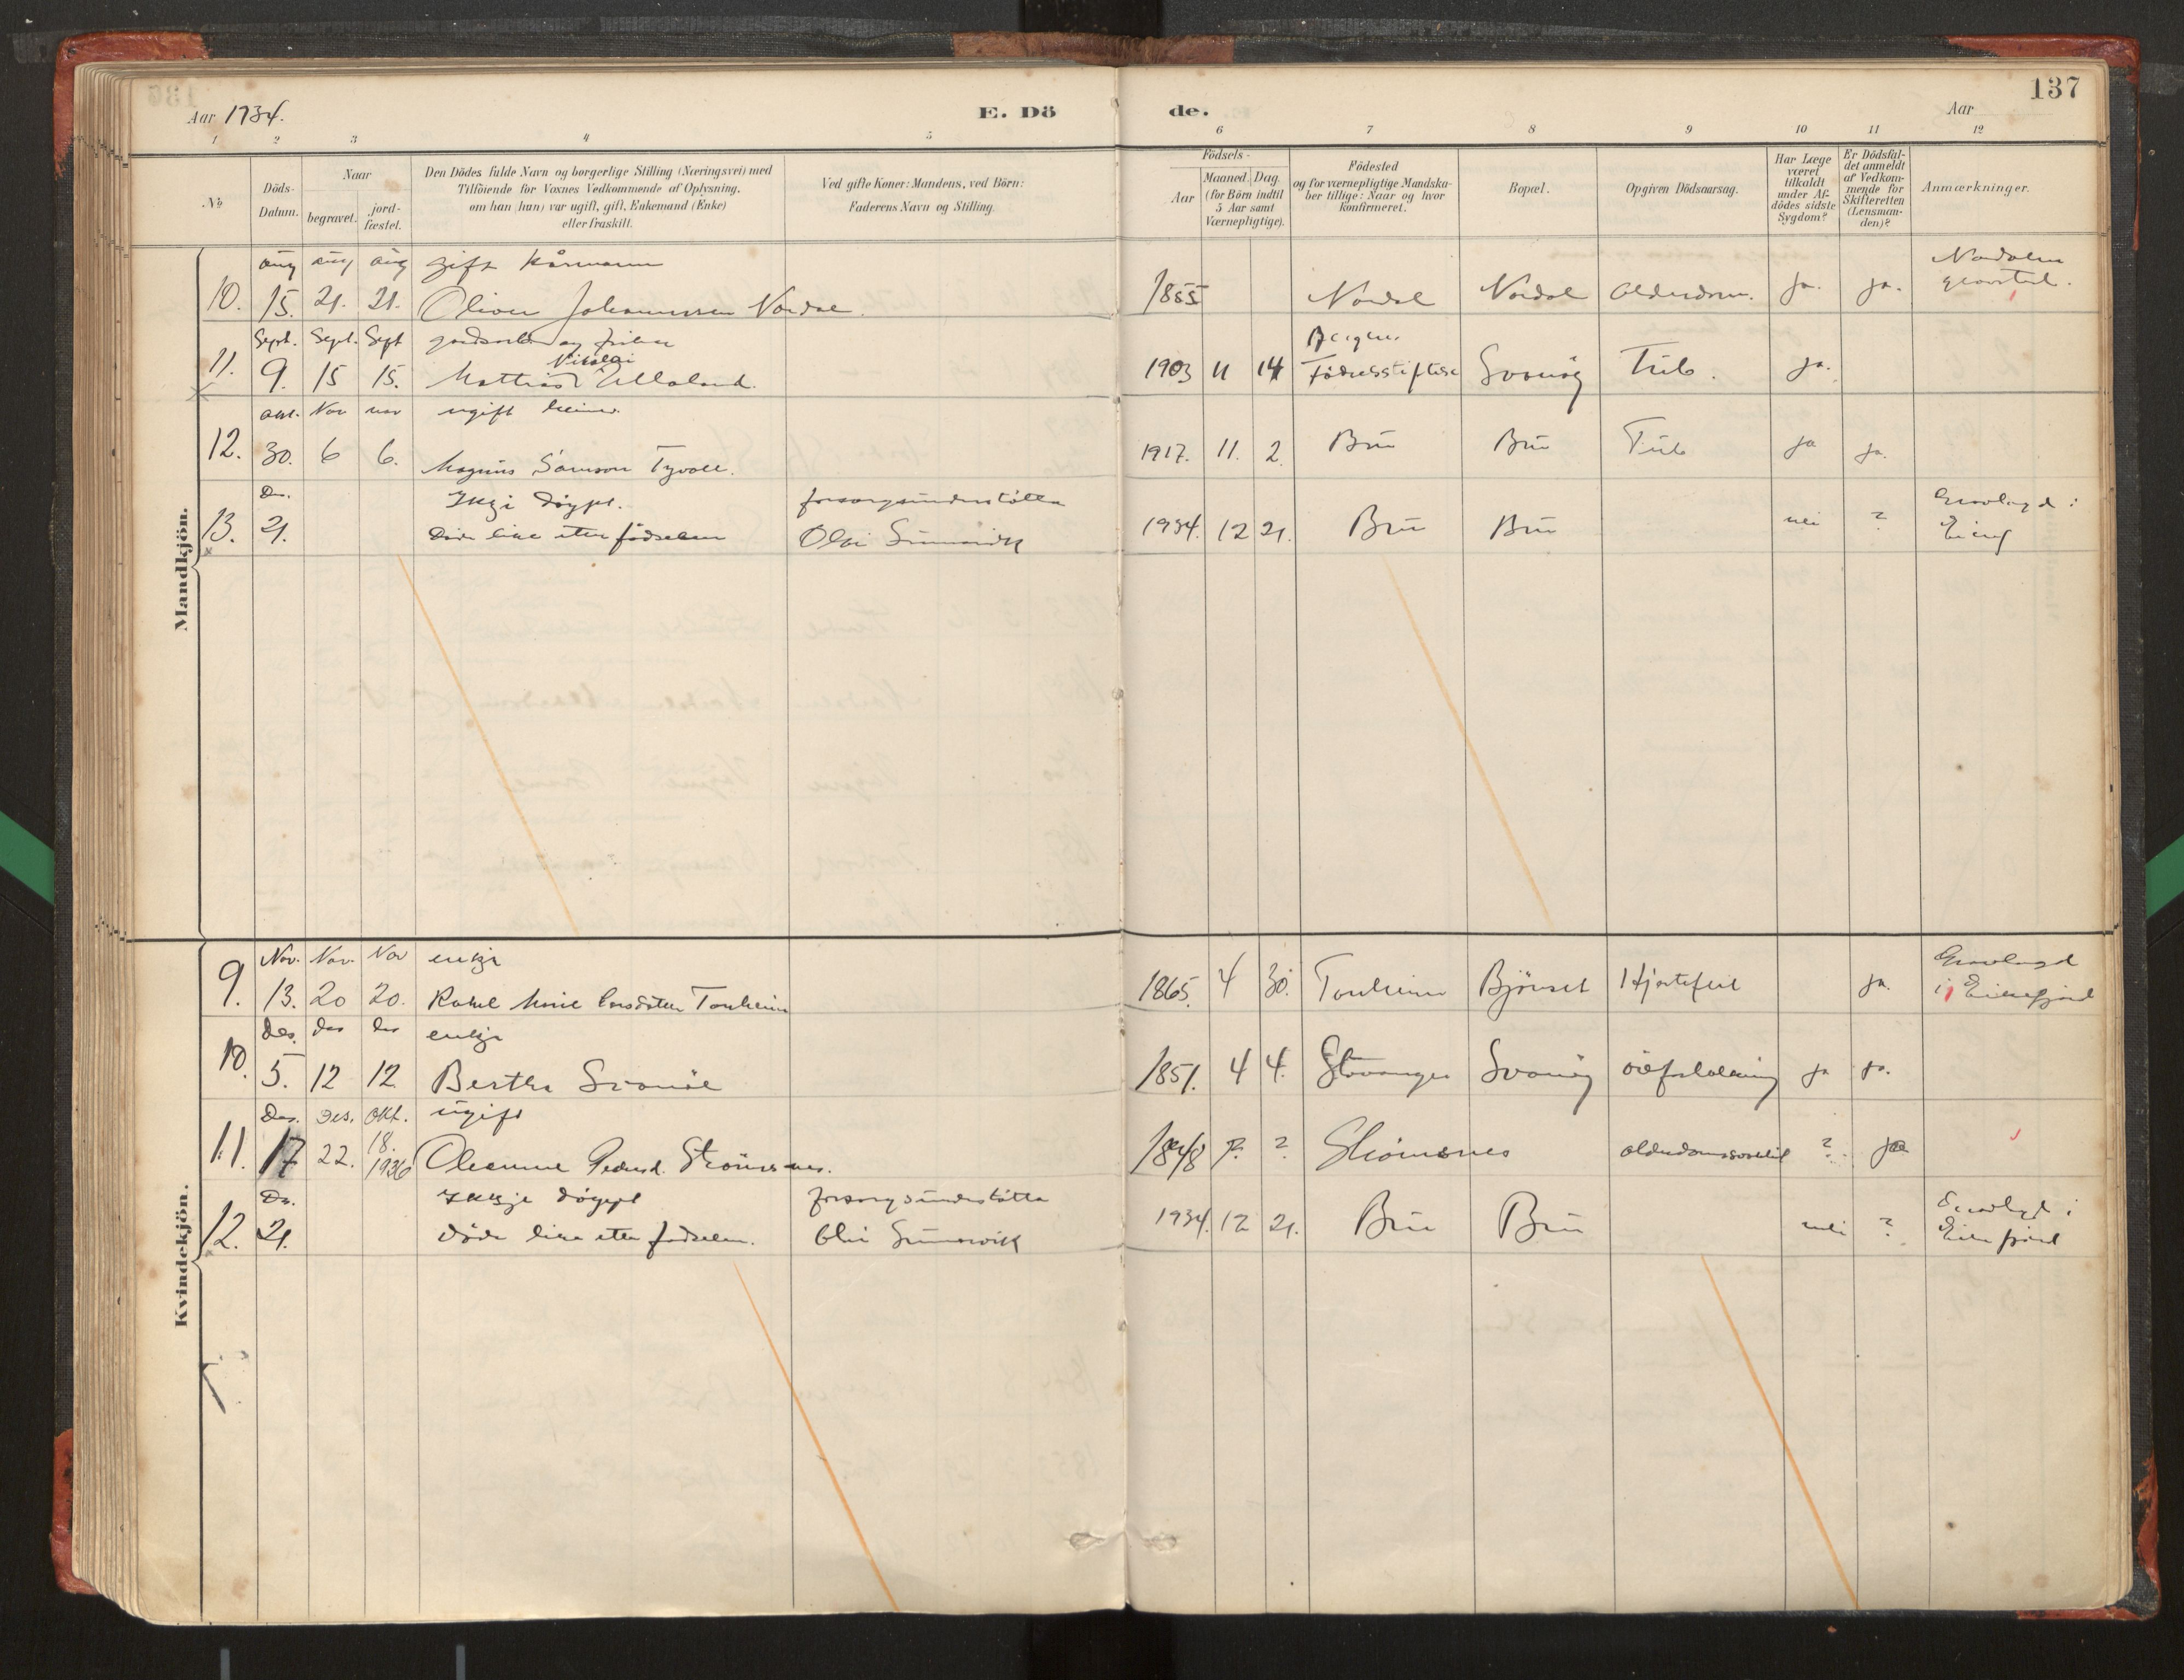 137
Aar 1934.
E. Döde.
Aar
1 2 3 4 5 6 7 8 9 10 11 12
№
Döds-Datum.
Naar
begravet.
jord-fæstet.
Den Dödes fulde Navn og borgerlige Stilling (Næringsvei) med
Tilföiende for Voxnes Vedkommende af Oplysning,
om han (hun) var ugift, gift, Enkemand (Enke)
eller fraskilt.
Ved gifte Koner: Mandens, ved Börn:
Faderens Navn og Stilling.
Födsels-
Aar
Maaned. Dag.
(for Börn indtil
5 Aar samt
Værnepligtige).
Födested
og for værnepligtige Mandska-
ber tillige: Naar og hvor
konfirmeret.
Bopæl.
Opgiven Dödsaarsag.
Har Læge
været
tilkaldt
under Af-
dödes sidste
Sygdom?
Er Dödsfal-
det anmeldt
af Vedkom-
mende for
Skifteretten
(Lensman-
den)?
Anmærkninger.
Mandkjön.
aug aug aug gift kårmann
10. 15. 21. 21. Oliver Johannessen Nordal. 1855 Nordal Nordal Alderdom. ja. ja.
Sept. Sept. Sept
Nikolai Bergen
11. 9. 15 15. Mattias Ullaland. 1903 11 14 Födselsstiftelse Svanöy Tub. ja.
okt. Nov nov ugift
12. 30. 6 6. Magnus Samson Tyvoll. 1917. 11. 2. Bru Bru Tub ja ja.
Des. Ikkje döypt. forsorgsunderstötta
13. 21. Döde like etter födselen 1934. 12 21. Bru Bru nei ?
Kvindekjön.
Nov. Nov. Nov enkje Gravlagd
9. 13. 20 20. Rakel Marie Larsdotter Tonheim 1865. 4 30. Tonheim Björset Hjartefeil ja. i Eikefjord
Des. des des enkje
10. 5. 12 12 Bertha Svanöe 1851. 4 4. Stavanger Svanöy ja ja.
Des. Des. Okt. ugift
11. 17 22. 18. 1936 Oleanna Pedersd. Strömsnes. 1848 ? ? Strömsnes ? ja
Des. Ikkje döypt forsorgsunderstötta Gravlagd i
12. 21. döde like etter födselen. 1934. 12 21. Bru Bru nei ? Eikefjord